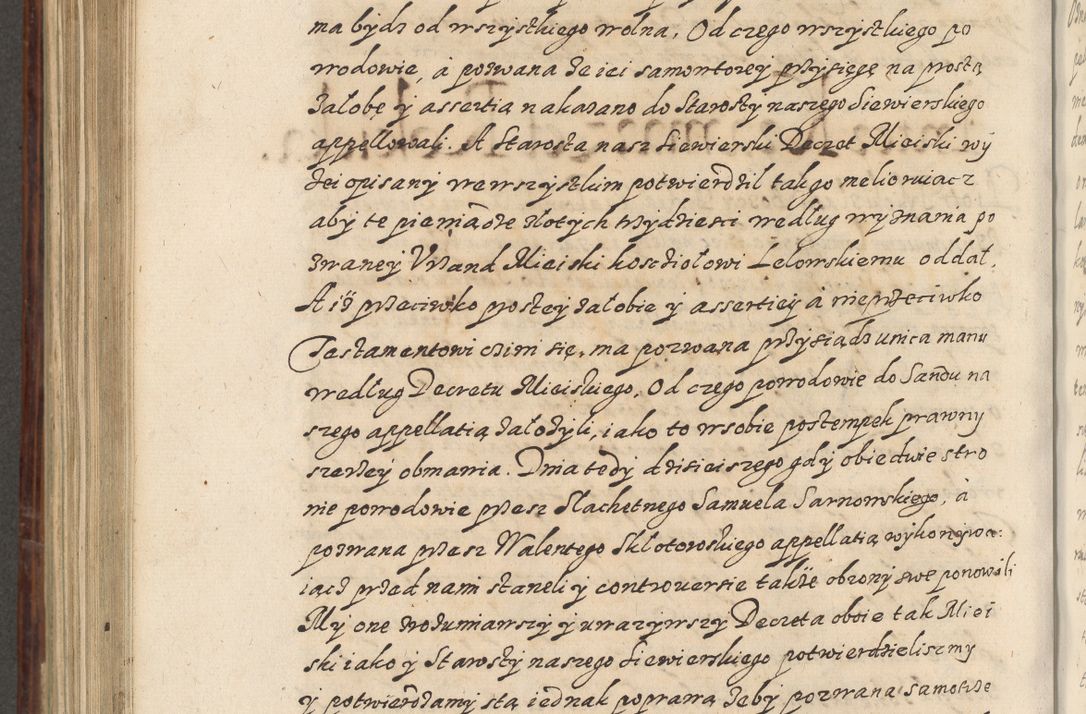 ma bydz od wszystkiego wolna, Od czego wszystkiego po
wodowie, á pozwana że iei samowtorey przysięgę na prostą
żałobę y assertią nakazano do Starosty naszego Siewierskiego
appellowali. A Starosta nasz Siewierski Decret Mieiski wy
żei opisany we wszystkim potwierdził tak go melioruiacz
aby te pieniądze złotych trzydziesci według wyznania po
zwaney Vrzand Mieiski kosciołowi Lelowskiemu oddał,
A iż przeciwko prostey żałobie y assertiey á nieprzeciwko
Testamentowi czini się, ma pozwana przysiądz unica manu
według Decretu Mieiskiego. Od czego powodowie do Sandu na
szego appellatią założyli, iako to w sobie postempek prawny
szerzey obmawia. Dnia tedy dzisieiszego gdy obiedwie stro
nie powodowie przez Slachetnego Samuela Sarnowskiego, á
pozwana przez Walentego Skłotowskiego appellatią wykonywa:
iącz przed nami staneli y controuersie także obrony swe ponowili
My one zrozumiawszy y uwazywszy Decreta oboie tak Miei
ski iako y Starosty naszego Siewierskiego potwierdzielismy
y potwierdzamy stą iednak poprawą żeby pozwana samotrze